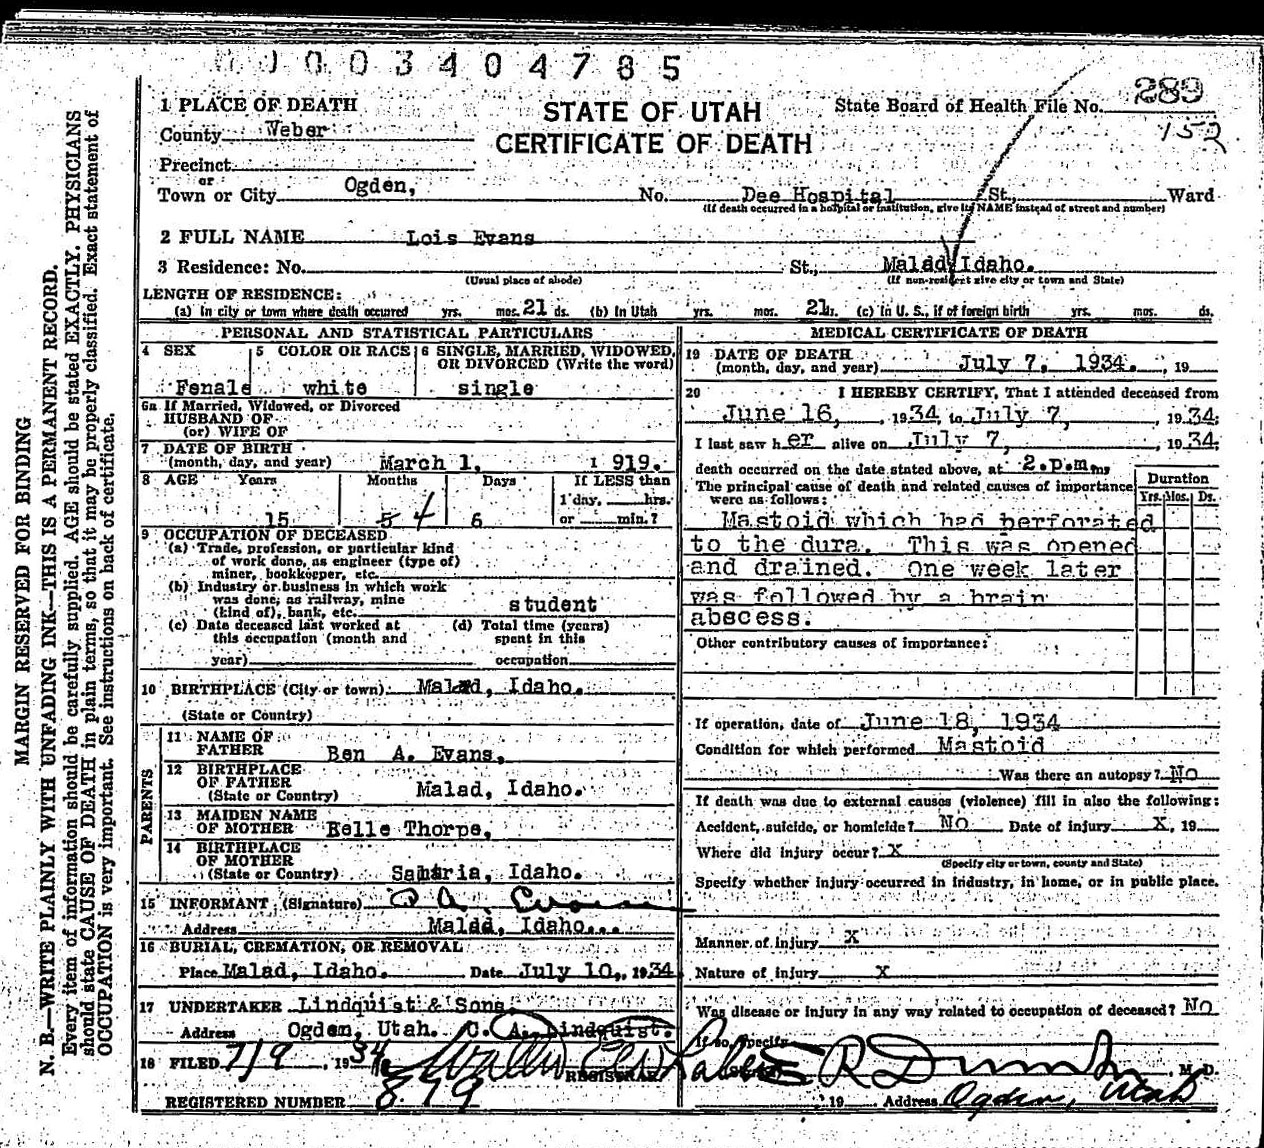 0003404785
1 PLACE OF DEATH
STATE OF UTAH
CERTIFICATE OF DEATH
State Board of Health File No. 289
152
County Weber
Precinct
or
Town or City Ogden, No. Dee Hospital St., Ward
(If death occurred in a hospital or institution, give its NAME instead of street and number)
2 FULL NAME Lois Evans
3 Residence: No. St., Malad, Idaho.
(Usual place of abode) (If non-resident give city or town and State)
LENGTH OF RESIDENCE:
(a) In city or town where death occurred yrs. mos. 21 ds. (b) In Utah yrs. mos. 21 ds. (c) In U. S., if of foreign birth yrs. mos. ds.
PERSONAL AND STATISTICAL PARTICULARS
4 SEX 5 COLOR OR RACE 6 SINGLE, MARRIED, WIDOWED,
OR DIVORCED (Write the word)
Female white single
6a If Married, Widowed, or Divorced
HUSBAND OF
(or) WIFE OF
7 DATE OF BIRTH
(month, day, and year) March 1, 1 919.
8 AGE Years Months Days If LESS than
1 day, hrs.
15 5 4 6 or min.?
9 OCCUPATION OF DECEASED
(a) Trade, profession, or particular kind
of work done, as engineer (type of)
miner, bookkeeper, etc.
(b) Industry or business in which work
was done, as railway, mine
(kind of), bank, etc. student
(c) Date deceased last worked at (d) Total time (years)
this occupation (month and spent in this
year) occupation
10 BIRTHPLACE (City or town) Malad, Idaho.
(State or Country)
PARENTS
11 NAME OF
FATHER Ben A. Evans,
12 BIRTHPLACE
OF FATHER
(State or Country) Malad, Idaho.
13 MAIDEN NAME
OF MOTHER Belle Thorpe,
14 BIRTHPLACE
OF MOTHER
(State or Country) Samaria, Idaho.
15 INFORMANT (Signature) Evans
Address Malad, Idaho...
16 BURIAL, CREMATION, OR REMOVAL
Place Malad, Idaho. Date July 10,, 1934
17 UNDERTAKER Lindquist & Sons,
Address Ogden, Utah. C. A. Lindquist.
18 FILED 7/9, 1934
REGISTRAR
REGISTERED NUMBER 879
MEDICAL CERTIFICATE OF DEATH
19 DATE OF DEATH
(month, day, and year) July 7, 1934. , 19
20 I HEREBY CERTIFY, That I attended deceased from
June 16, , 1934, to July 7, , 1934.
I last saw her alive on July 7, , 1934.
death occurred on the date stated above, at 2.p.m. m,
The principal cause of death and related causes of importance
were as follows:
Duration
Yrs. Mos. Ds.
Mastoid which had perforated
to the dura. This was opened
and drained. One week later
was followed by a brain
abscess.
Other contributory causes of importance:
If operation, date of June 18, 1934
Condition for which performed Mastoid
Was there an autopsy? No
If death was due to external causes (violence) fill in also the following:
Accident, suicide, or homicide? No Date of injury X, 19
Where did injury occur? X
(Specify city or town, county and State)
Specify whether injury occurred in industry, in home, or in public place.
Manner of injury X
Nature of injury X
Was disease or injury in any way related to occupation of deceased? No
If so, specify
E R Dumke, M. D.
19 Address Ogden, Utah
MARGIN RESERVED FOR BINDING
N. B.—WRITE PLAINLY WITH UNFADING INK—THIS IS A PERMANENT RECORD.
Every item of information should be carefully supplied. AGE should be stated EXACTLY. PHYSICIANS
should state CAUSE OF DEATH in plain terms, so that it may be properly classified. Exact statement of
OCCUPATION is very important. See instructions on back of certificate.